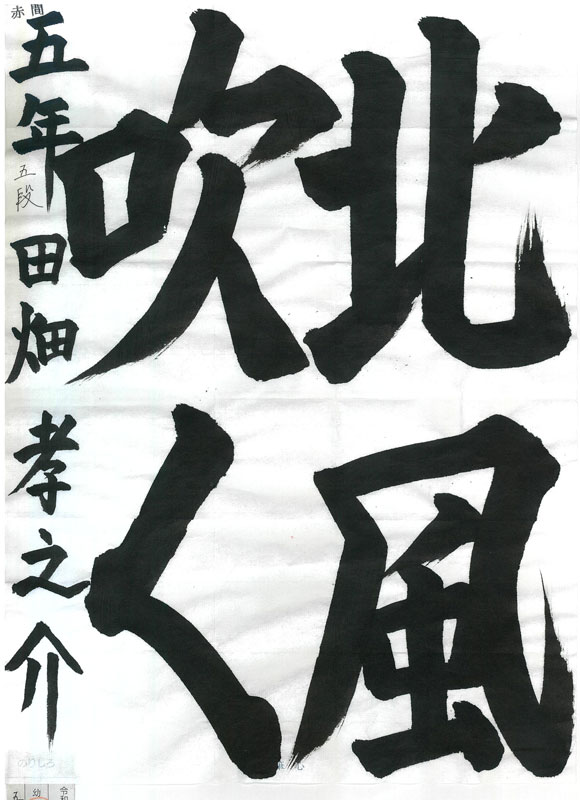 北風
吹く
赤間
五年 五段 田畑 孝之介
のりしろ
心
幼
令和